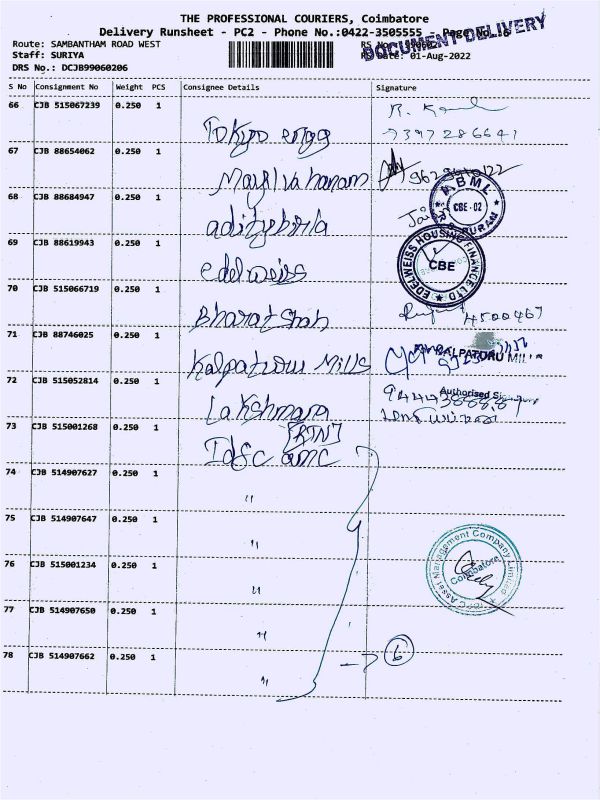 THE PROFESSIONAL COURIERS, Coimbatore
Delivery Runsheet - PC2 - Phone No.:0422-3505555 - Page No. 6
DOCUMENT DELIVERY
Route: SAMBANTHAM ROAD WEST
Staff: SURIYA
RS Date: 01-Aug-2022
DRS No.: DCJB99060206
S No Consignment No Weight PCS Consignee Details Signature
66 CJB 515067239 0.250 1
Tokyo engg 7397286641
67 CJB 88654062 0.250 1
Mayil vahanam
68 CJB 88684947 0.250 1
ABML
CBE-02
PURAM
adityabirla
69 CJB 88619943 0.250 1
EDELWEISS HOUSING FINANCE LTD
CBE
edelweiss
70 CJB 515066719 0.250 1
Bharat Shah
71 CJB 88746025 0.250 1
KALPATURU MILLS
Kalpaturu Mills
72 CJB 515052814 0.250 1
Authorised
Lakshmana
73 CJB 515001268 0.250 1
[RTN]
Idfc amc
74 CJB 514907627 0.250 1
"
75 CJB 514907647 0.250 1
"
76 CJB 515001234 0.250 1
Asset Management Company Limited
Coimbatore
"
77 CJB 514907650 0.250 1
"
78 CJB 514907662 0.250 1
6
"